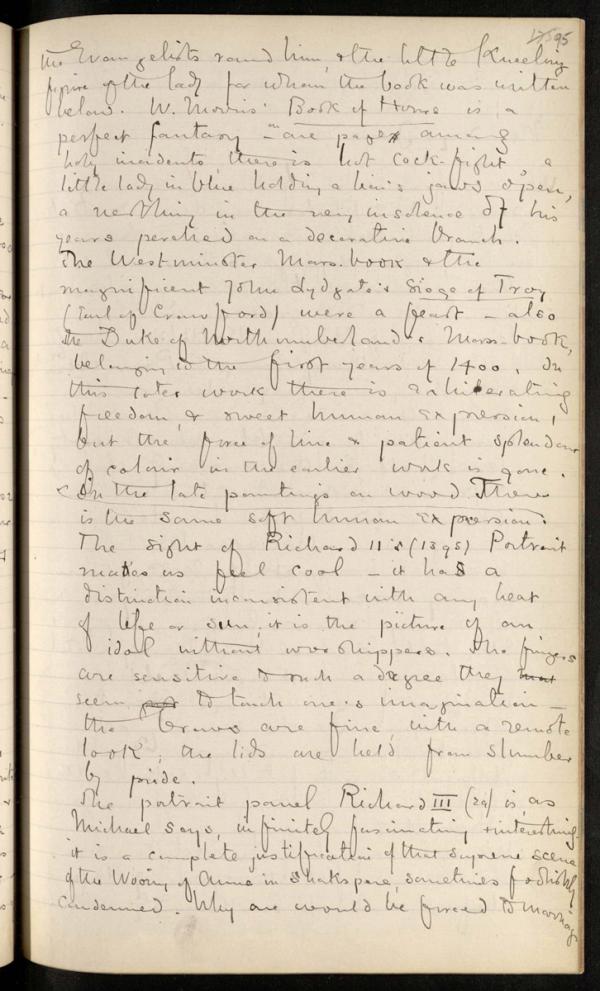 95
the Evangelists round him, & the little kneeling
figure of the lady for whom the book was written
below. W. Morris' Book of Hours is a
perfect fantasy — are pages among
holy incidents, there is hot cock-fight, a
little lady in blue holding a lion's jaws open,
a nestling in the very insolence of his
years perched on a decorative branch.
The Westminster Mass-book & the
magnificent John Lydgate's Siege of Troy
(Earl of Crawford) were a feast — also
the Duke of Northumberland's Mass-book,
belonging to the first years of 1400. In
this later work there is exhilerating
freedom, & sweet human expression,
but the force of line & patient splendour
of colour in the earlier work is gone.
In the late paintings on wood There
is the same soft human expression.
The sight of Richard II's (1395) Portrait
makes us feel cool — it has a
distinction inconsistent with any heat
of life or sun, it is the picture of an
idol without worshippers. The fingers
are sensitive to such a degree they
seem to touch one's imagination —
the brows are fine, with a remote
look, the lids are held from slumber
by pride.
The portrait panel Richard III (29) is, as
Michael says, infinitely fascinating & interesting.
it is a complete justification of that supreme scene
of the Wooing of Anne in Shakspere, sometimes foolishly
condemned. Why one would be forced to marriage